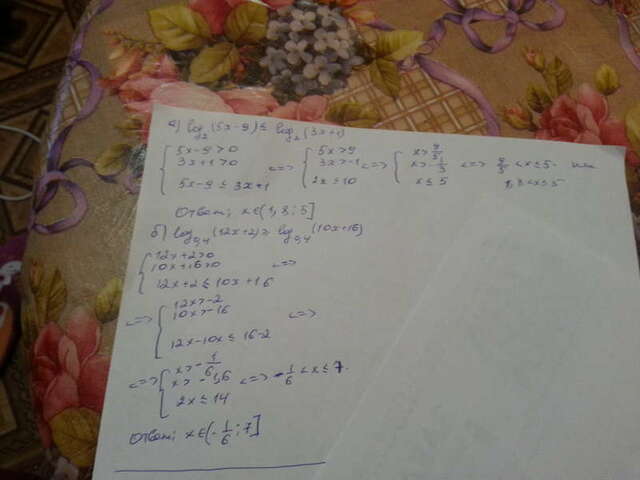 а) log₂(5x-9) ≤ log₂(3x+1)
{ 5x-9>0 3x+1>0 5x-9 ≤ 3x+1 <=> { 5x>9 3x>-1 2x≤10 <=> { x>9/5 x>-1/3 x≤5 <=> 9/5<x≤5 или
1,8<x≤5
Ответ: x∈(1,8;5]
б) log₀,₄(12x+2) ≥ log₀,₄(10x+16)
{ 12x+2>0
10x+16>0 <=>
12x+2 ≤ 10x+16
<=> { 12x>-2
10x>-16 <=>
12x-10x ≤ 16-2
<=> { x>-1/6
x>-1,6 <=> -1/6<x≤7.
2x≤14
Ответ: x∈(-1/6;7]